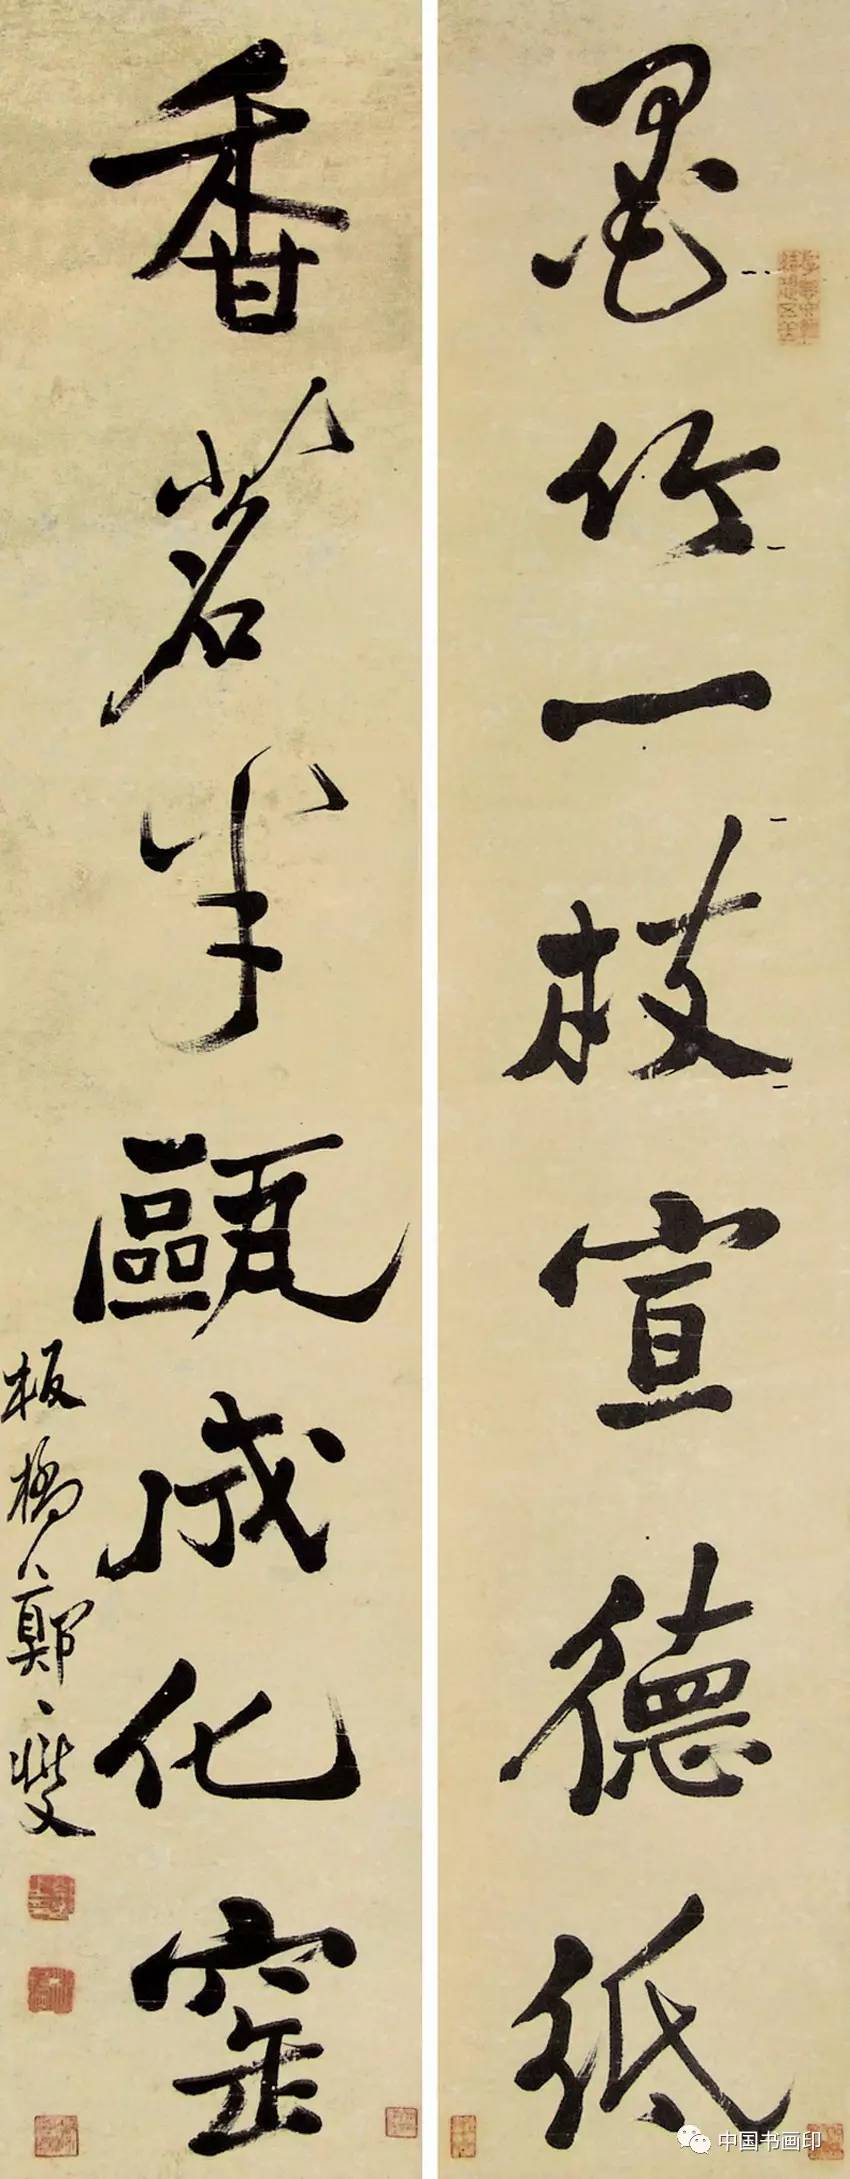 墨竹一枝宣德纸
香茗半瓯成化窑
板橋鄭燮
中国书画印